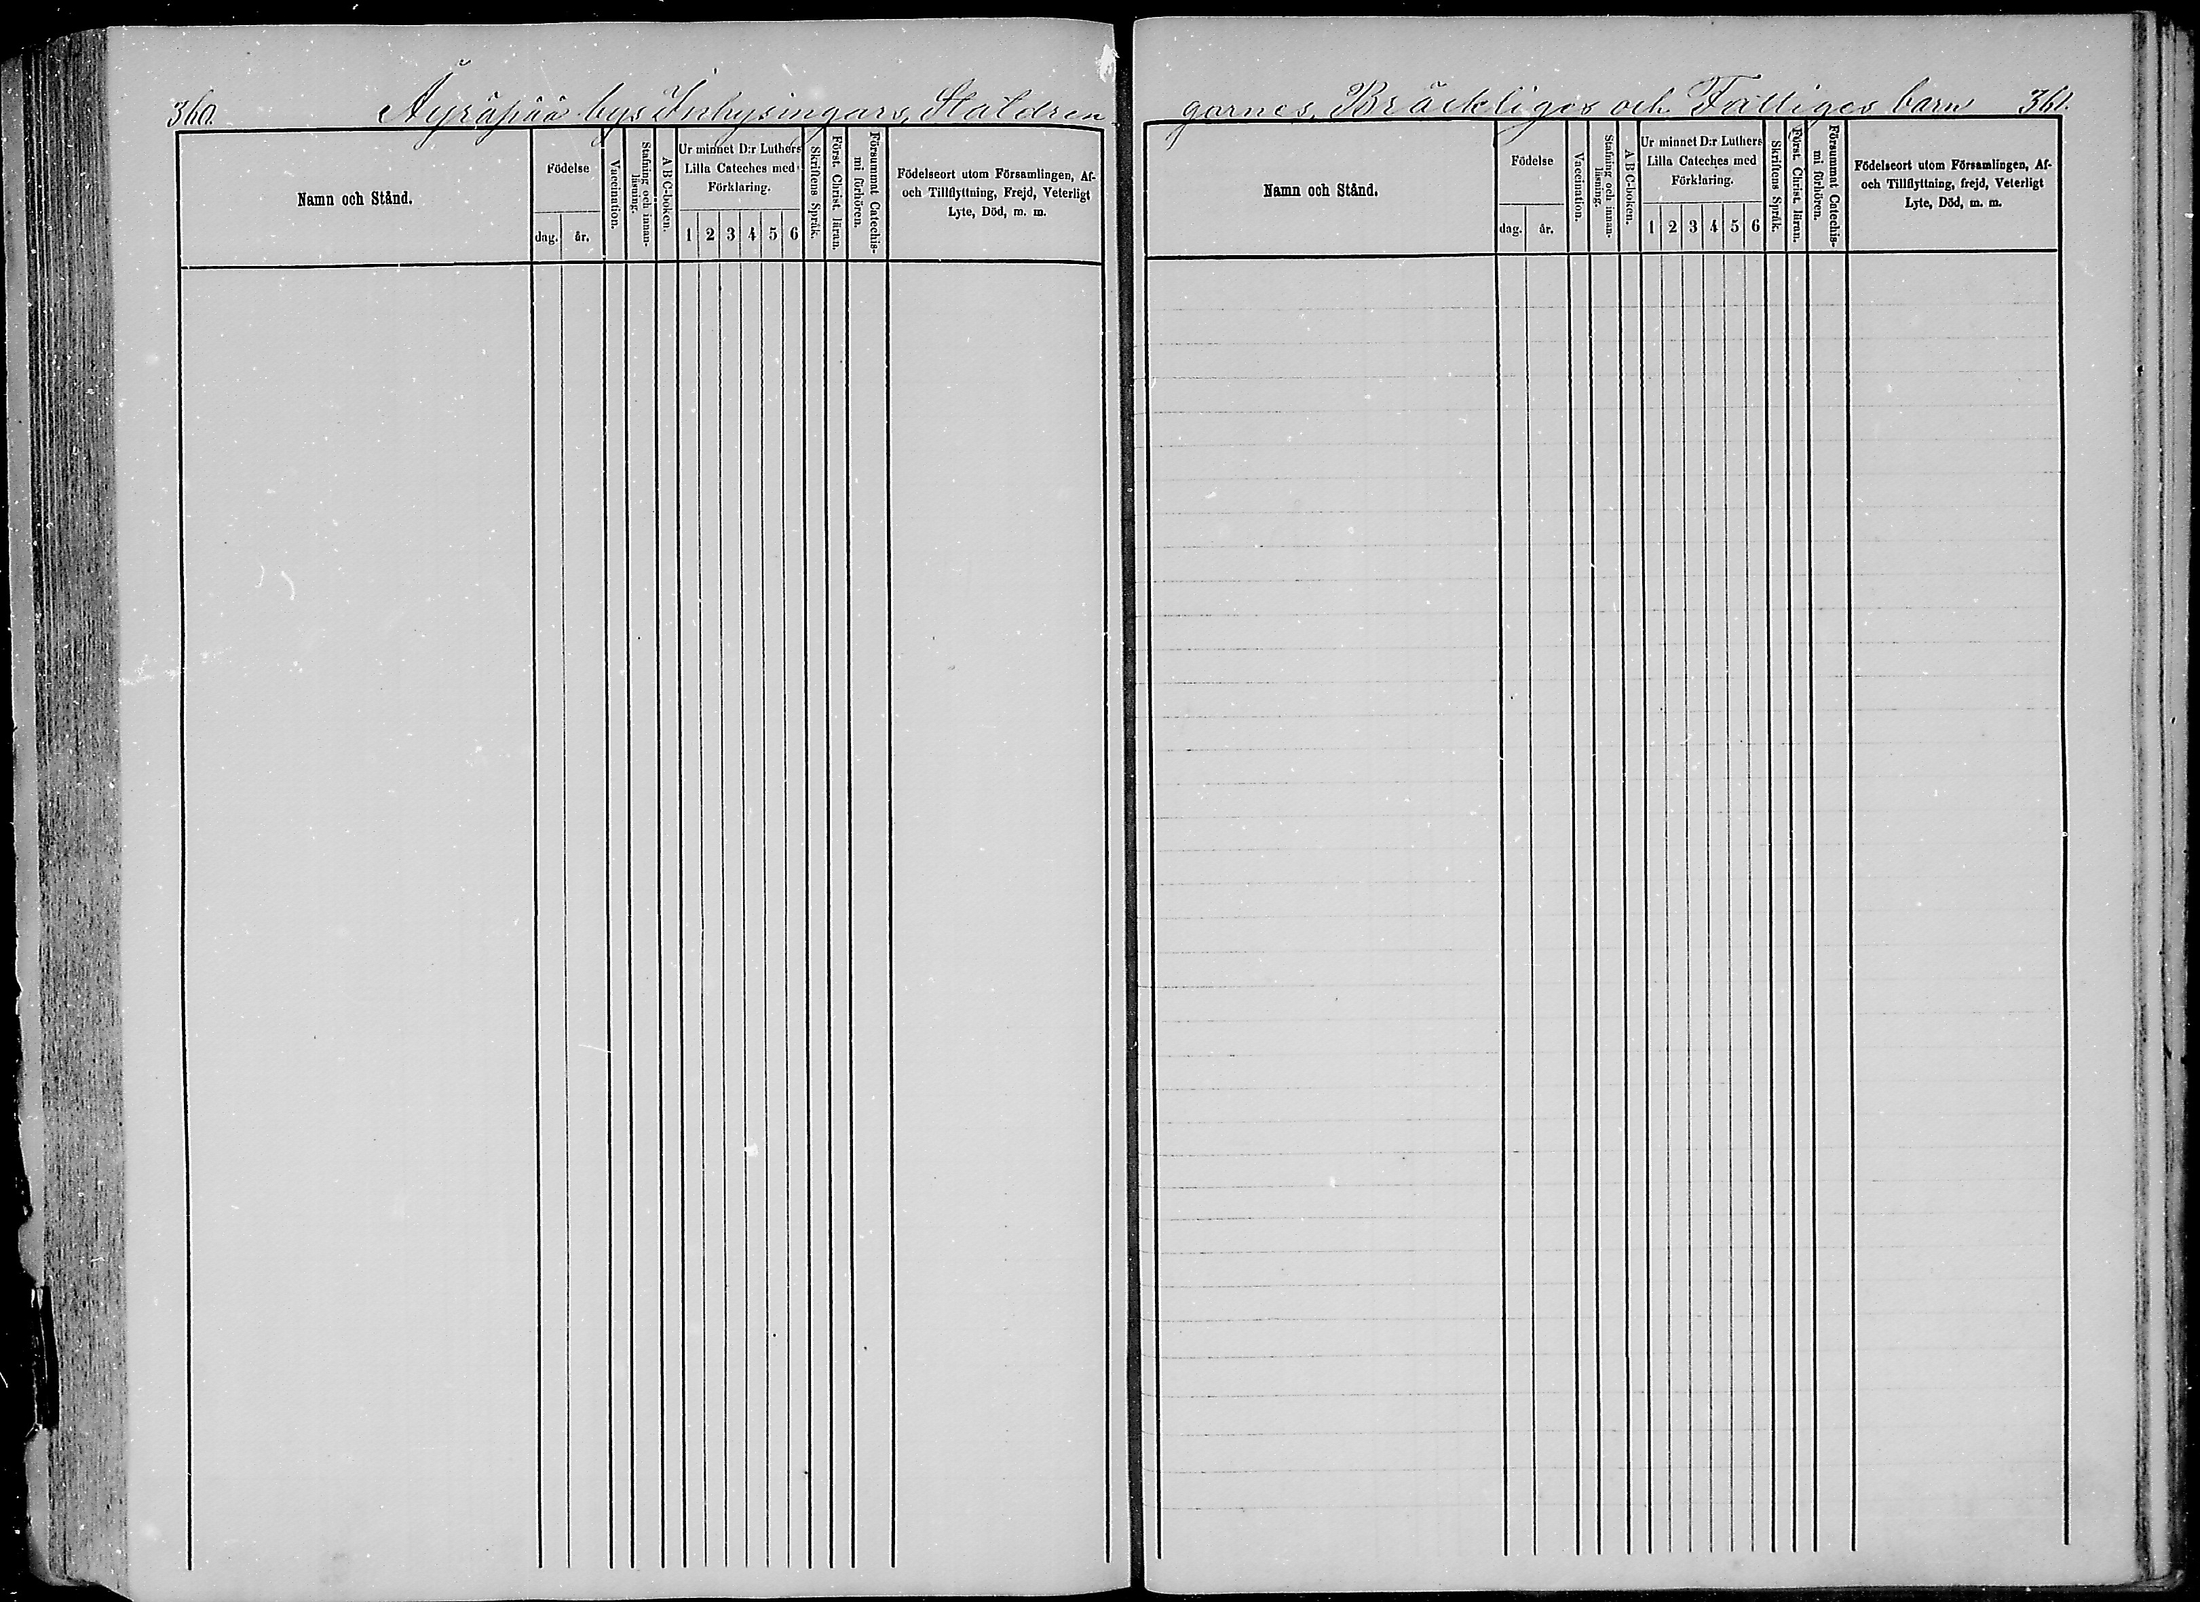 360. Äyräpää bys Inhysingars, Statdren
Namn och Stånd.
Födelse
dag. år.
Vaccination.
Stafning och innan-
läsning.
A B C-boken.
Ur minnet D:r Luthers
Lilla Cateches med
Förklaring.
1 2 3 4 5 6
Skriftens Språk.
Först. Christ. läran.
Försummat Catechis-
mi förhören.
Födelseort utom Församlingen, Af-
och Tillflyttning, Frejd, Veterligt
Lyte, Död, m. m.
garnes, Bräckliges och Fattiges barn 361.
Namn och Stånd.
Födelse
dag. år.
Vaccination.
Stafning och innan-
läsning.
A B C-boken.
Ur minnet D:r Luthers
Lilla Cateches med
Förklaring.
1 2 3 4 5 6
Skriftens Språk.
Först. Christ. läran.
Försummat Catechis-
mi förhören.
Födelseort utom Församlingen, Af-
och Tillflyttning, frejd, Veterligt
Lyte, Död, m. m.